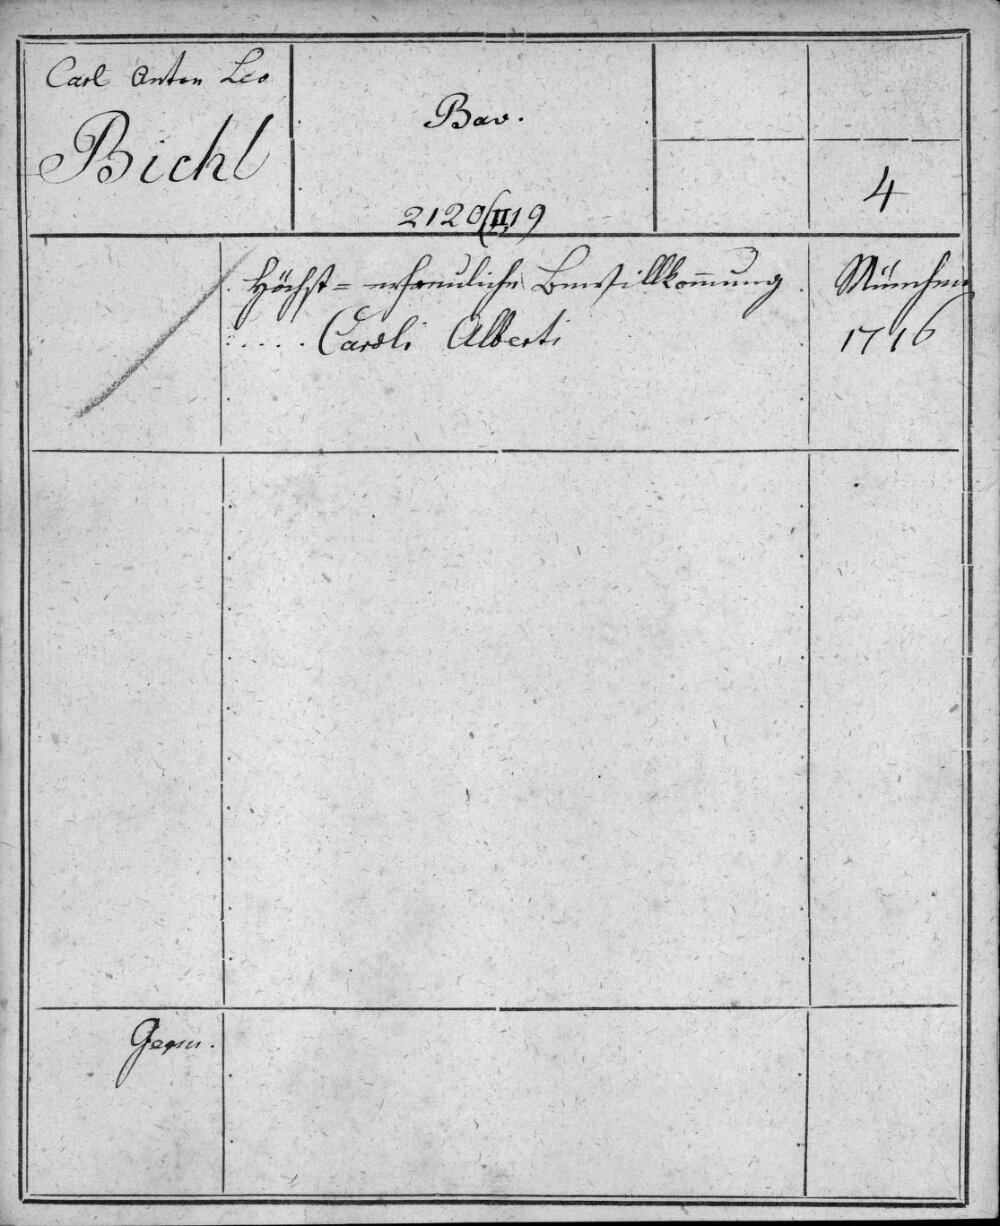 Carl Anton Leo
Bichl
Bav.
2120(II,19)
4
Höchst = erfreuliche Bewillkomung
..... Caroli Alberti
München
1716
Germ.